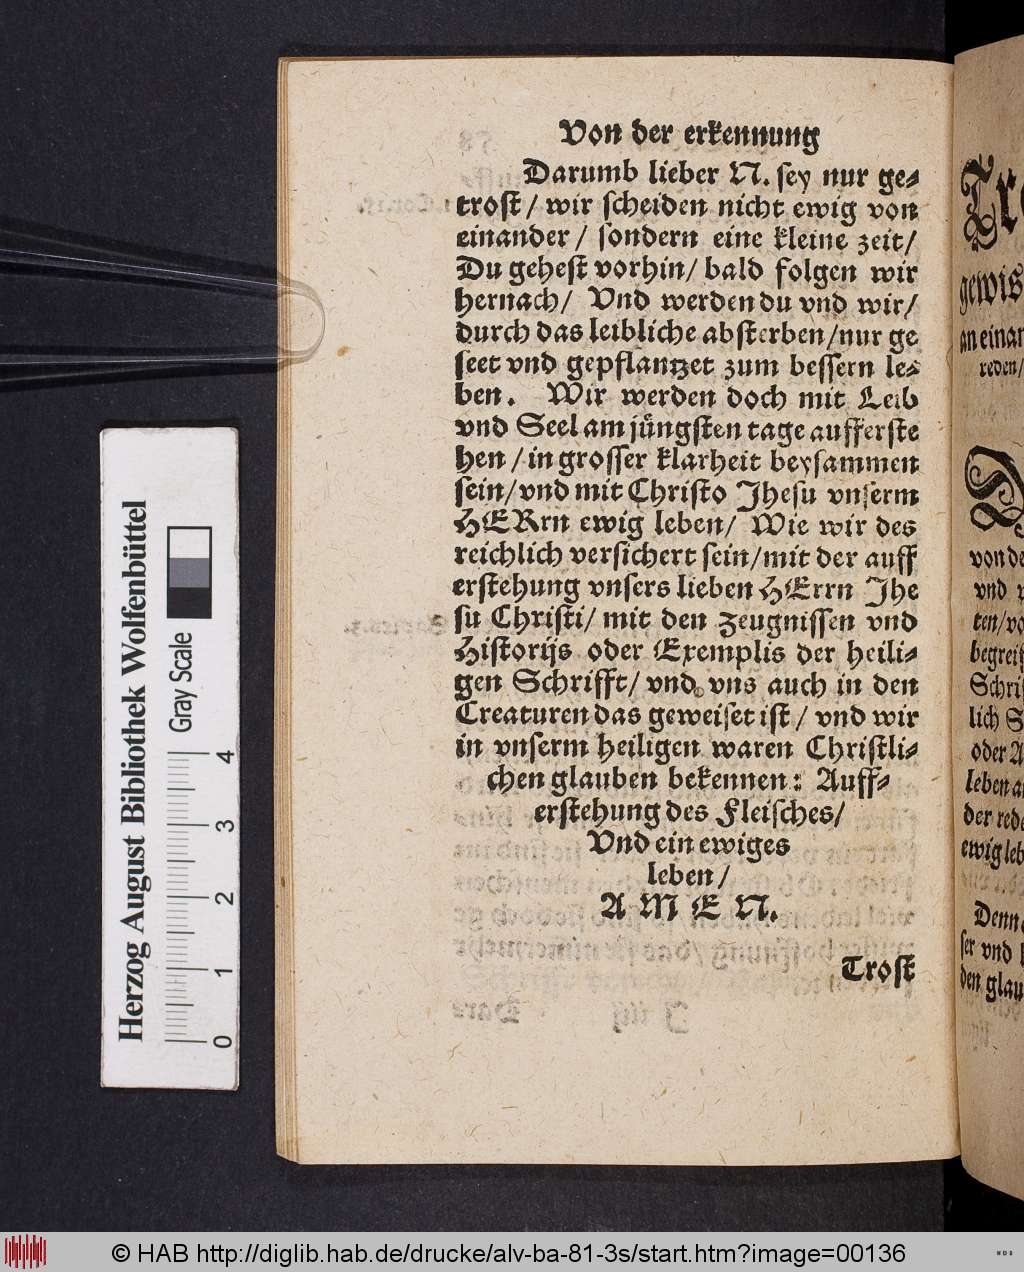 Von der erkennung
Darumb lieber N. sey nur ge-
trost / wir scheiden nicht ewig von
einander / sondern eine kleine zeit /
Du gehest vorhin / bald folgen wir
hernach / Vnd werden du vnd wir /
durch das leibliche absterben / nur ge
seet vnd gepflantzet zum bessern le-
ben. Wir werden doch mit Leib
vnd Seel am jüngsten tage aufferste
hen / in grosser klarheit beysammen
sein / vnd mit Christo Jhesu vnserm
HERrn ewig leben / Wie wir des
reichlich versichert sein / mit der auff
erstehung vnsers lieben HErrn Jhe
su Christi / mit den Zeugnissen vnd
Historijs oder Exemplis der heili-
gen Schrifft / vnd vns auch in den
Creaturen das geweiset ist / vnd wir
in vnserm heiligen waren Christli-
chen glauben bekennen: Auff-
erstehung des Fleisches /
Vnd ein ewiges
leben /
A M E N.
Trost
gewis
an einan
reden /
von de
vnd
ten / vo
begreif
Schri
lich S
oder A
leben a
der rede
ewig leb
Denn
ser vnd
den glau
Herzog August Bibliothek Wolfenbüttel
Gray Scale
0 1 2 3 4
© HAB http://diglib.hab.de/drucke/alv-ba-81-3s/start.htm?image=00136